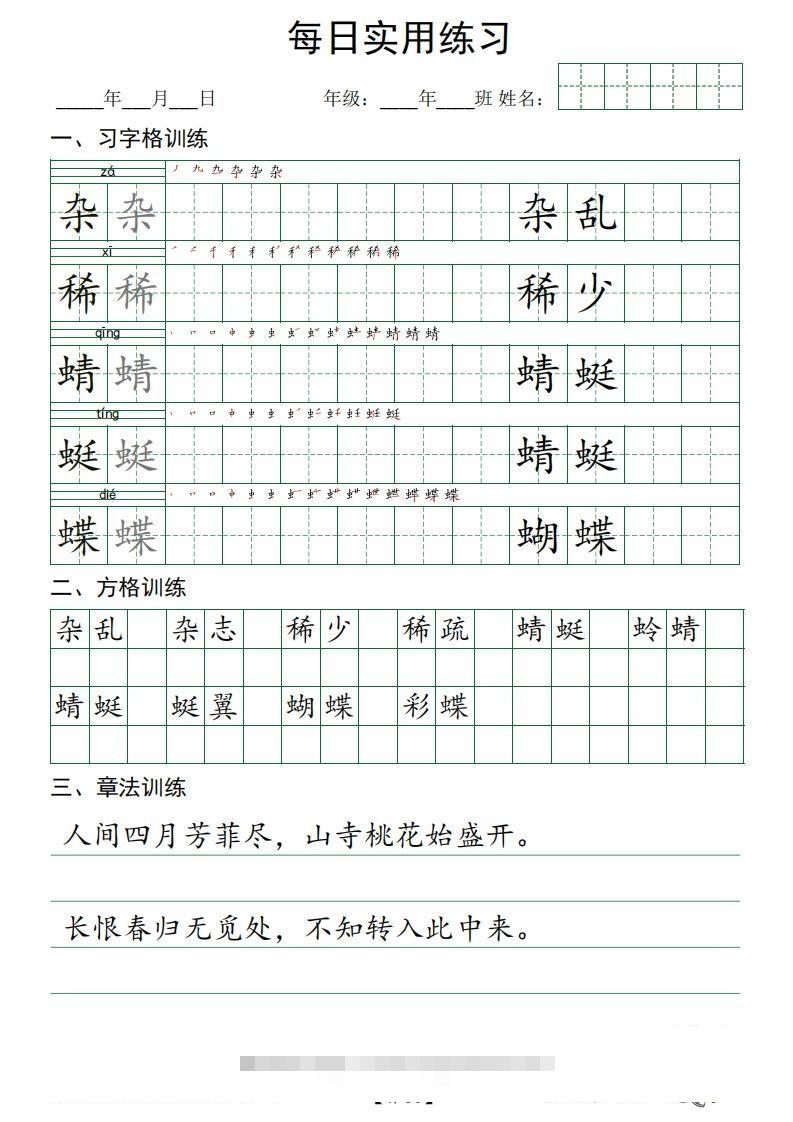 每日实用练习
_____年___月___日 年级：____年____班 姓名：
一、习字格训练
zá
杂 杂 杂 乱
xī
稀 稀 稀 少
qīng
蜻 蜻 蜻 蜓
tíng
蜓 蜓 蜻 蜓
dié
蝶 蝶 蝴 蝶
二、方格训练
杂 乱 杂 志 稀 少 稀 疏 蜻 蜓 蛉 蜻
蜻 蜓 蜓 翼 蝴 蝶 彩 蝶
三、章法训练
人间四月芳菲尽，山寺桃花始盛开。
长恨春归无觅处，不知转入此中来。